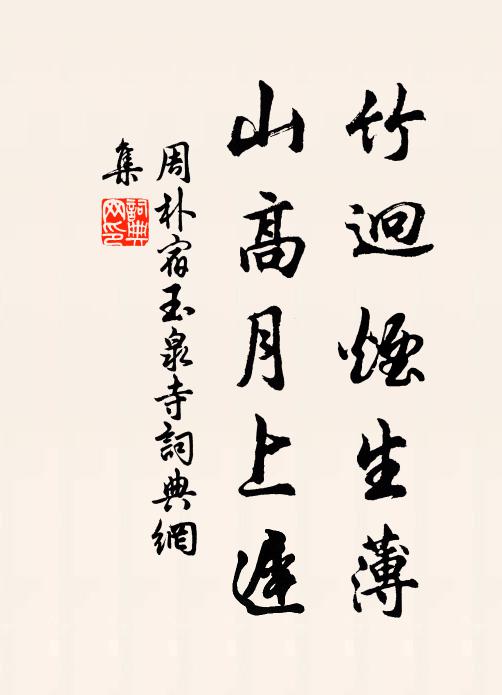 竹迥煙生薄
山高月上遲
周朴宿玉泉寺詞典網
集
詞典
网印